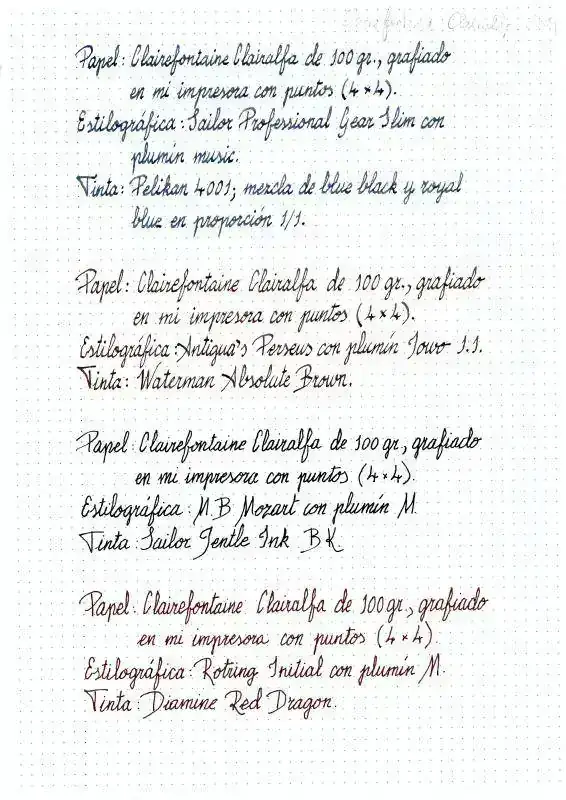 Papel: Clairefontaine Clairalfa de 100 gr., grafiado
en mi impresora con puntos (4×4).
Estilográfica: Sailor Professional Gear Slim con
plumín music.
Tinta: Pelikan 4001; mezcla de blue black y royal
blue en proporción 1/1.
Papel: Clairefontaine Clairalfa de 100 gr., grafiado
en mi impresora con puntos (4×4).
Estilográfica: Antigua's Perseus con plumín Jowo 1.1.
Tinta: Waterman Absolute Brown.
Papel: Clairefontaine Clairalfa de 100 gr., grafiado
en mi impresora con puntos (4×4).
Estilográfica: M.B Mozart con plumín M.
Tinta: Sailor Jentle Ink BK
Papel: Clairefontaine Clairalfa de 100 gr., grafiado
en mi impresora con puntos (4×4).
Estilográfica: Rotring Initial con plumín M.
Tinta: Diamine Red Dragon.